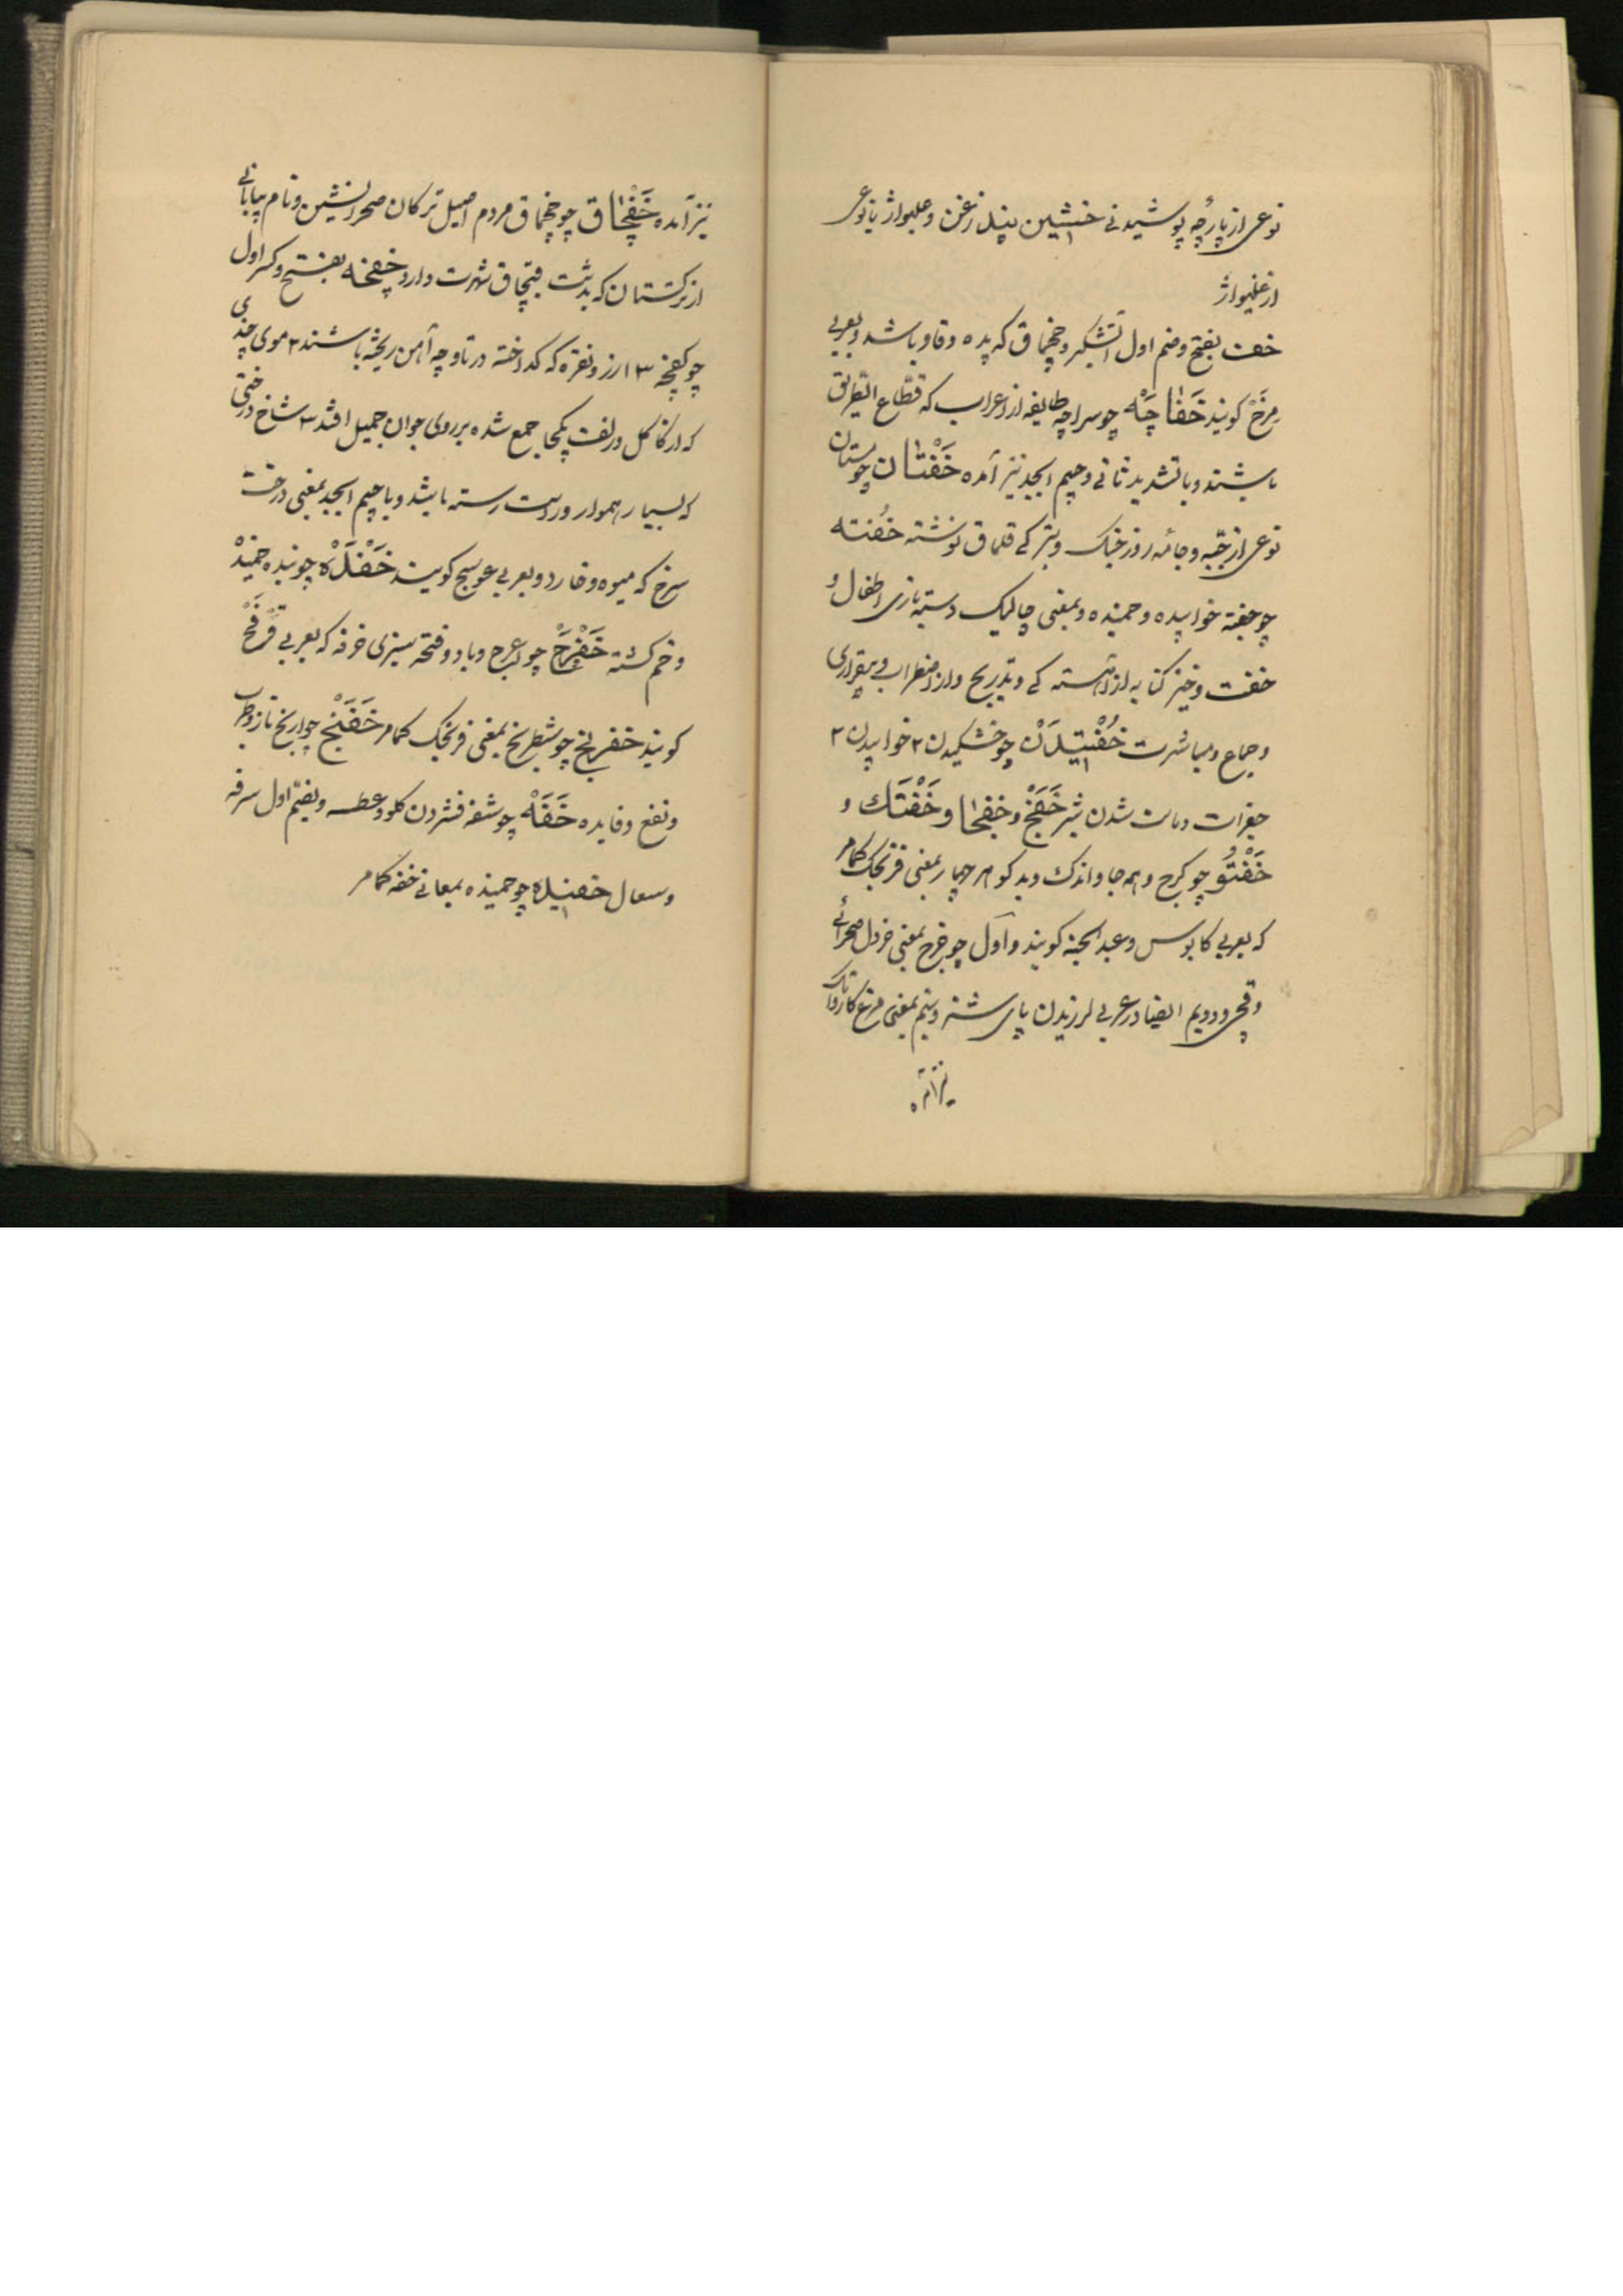 نوعی از پارچه پوشیدنی خشین پنبل زغن و علیواژ یا نوعی
از غلیواژ
خف بفتح و ضم اول آتشگیر و چخماق که پده و قاو باشد و بعربی
مرخ کویند خَفاجَه چو سراچه طایفه از اعراب که قطّاع الطریق
باشند و با تشدید ثانی و جیم ابجد نیز آمده خَفْتان چو ستان
نوعی از جبّه و جامهٔ روز جنک و بترکی قلماق نوشته خُفته
چو جفته خوابیده و خمیده و بمعنی چالیک و ستیه بازی اطفال و
خفت و خیز کنایه از آهسته کی و بتدریج و از اضطراب و بیقراری
و جماع و مباشرت خُفْتیدَن چو خشکیدن ۲ خوابیدن ۲
جغرات و مات شدن شیر خَفَج و خفجا و خَفْتَك و
خَفْتُو چو کرج و همه جا و اندک و بدکو هر چهار بمعنی فرنجک کمامر
که بعربی کابوس و عبد الجنه کویند و اول چو فرج بمعنی خردل صحرائی
و قچی و دویم ایضا در عربی لرزیدن پای شتر و بیم بمعنی مرغ کاروانک
نیز آمده
نیز آمده خَفْچاق چو چخماق مردم اصیل ترکان صحرانشین و نام بیابانی
از ترکستان که بدشت قبچاق شهرت دارد خفچه بفتح و کسر اول
چو کفچه ۱۳ ارز و نقره که کداخته در ناوچه آهن ریخته باشند ۲ موی چندی
که از کاکل و زلفت یکجا جمع شده بر روی جوان جمیل افتد ۳ شاخ درختی
که بسیار هموار و راست رسته باشد و با جیم ابجد بمعنی درخت
سرخ که میوه و خار دارد و بعربی عوسج کویند خَفْدَه چو بنده خمیده
و خم کشته خَفْرَج چو اعرج و با دو فتحه سبزی خرفه که بعربی فَرْفَخ
کویند خفرنج چو شطرنج بمعنی فرنجک کمامر خَفَنْج چو اریخ ناز و طرب
و نفع و فایده خَفَه چو شفه فشردن کلو و عطسه و بضم اول سرفه
و سعال خفیده چو خمیده بمعانی خفه کمامر